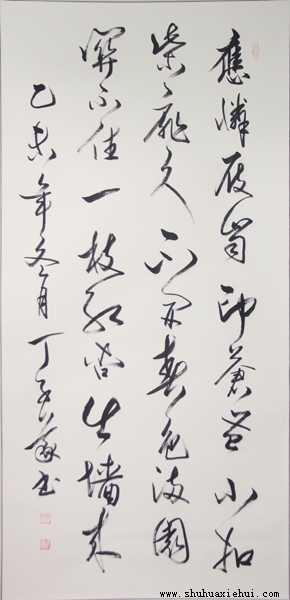 應憐屐齒印蒼苔小扣
柴扉久不開春色滿園
關不住一枝紅杏出墻來
乙未年冬月丁書
www.shuhuaxiehui.com